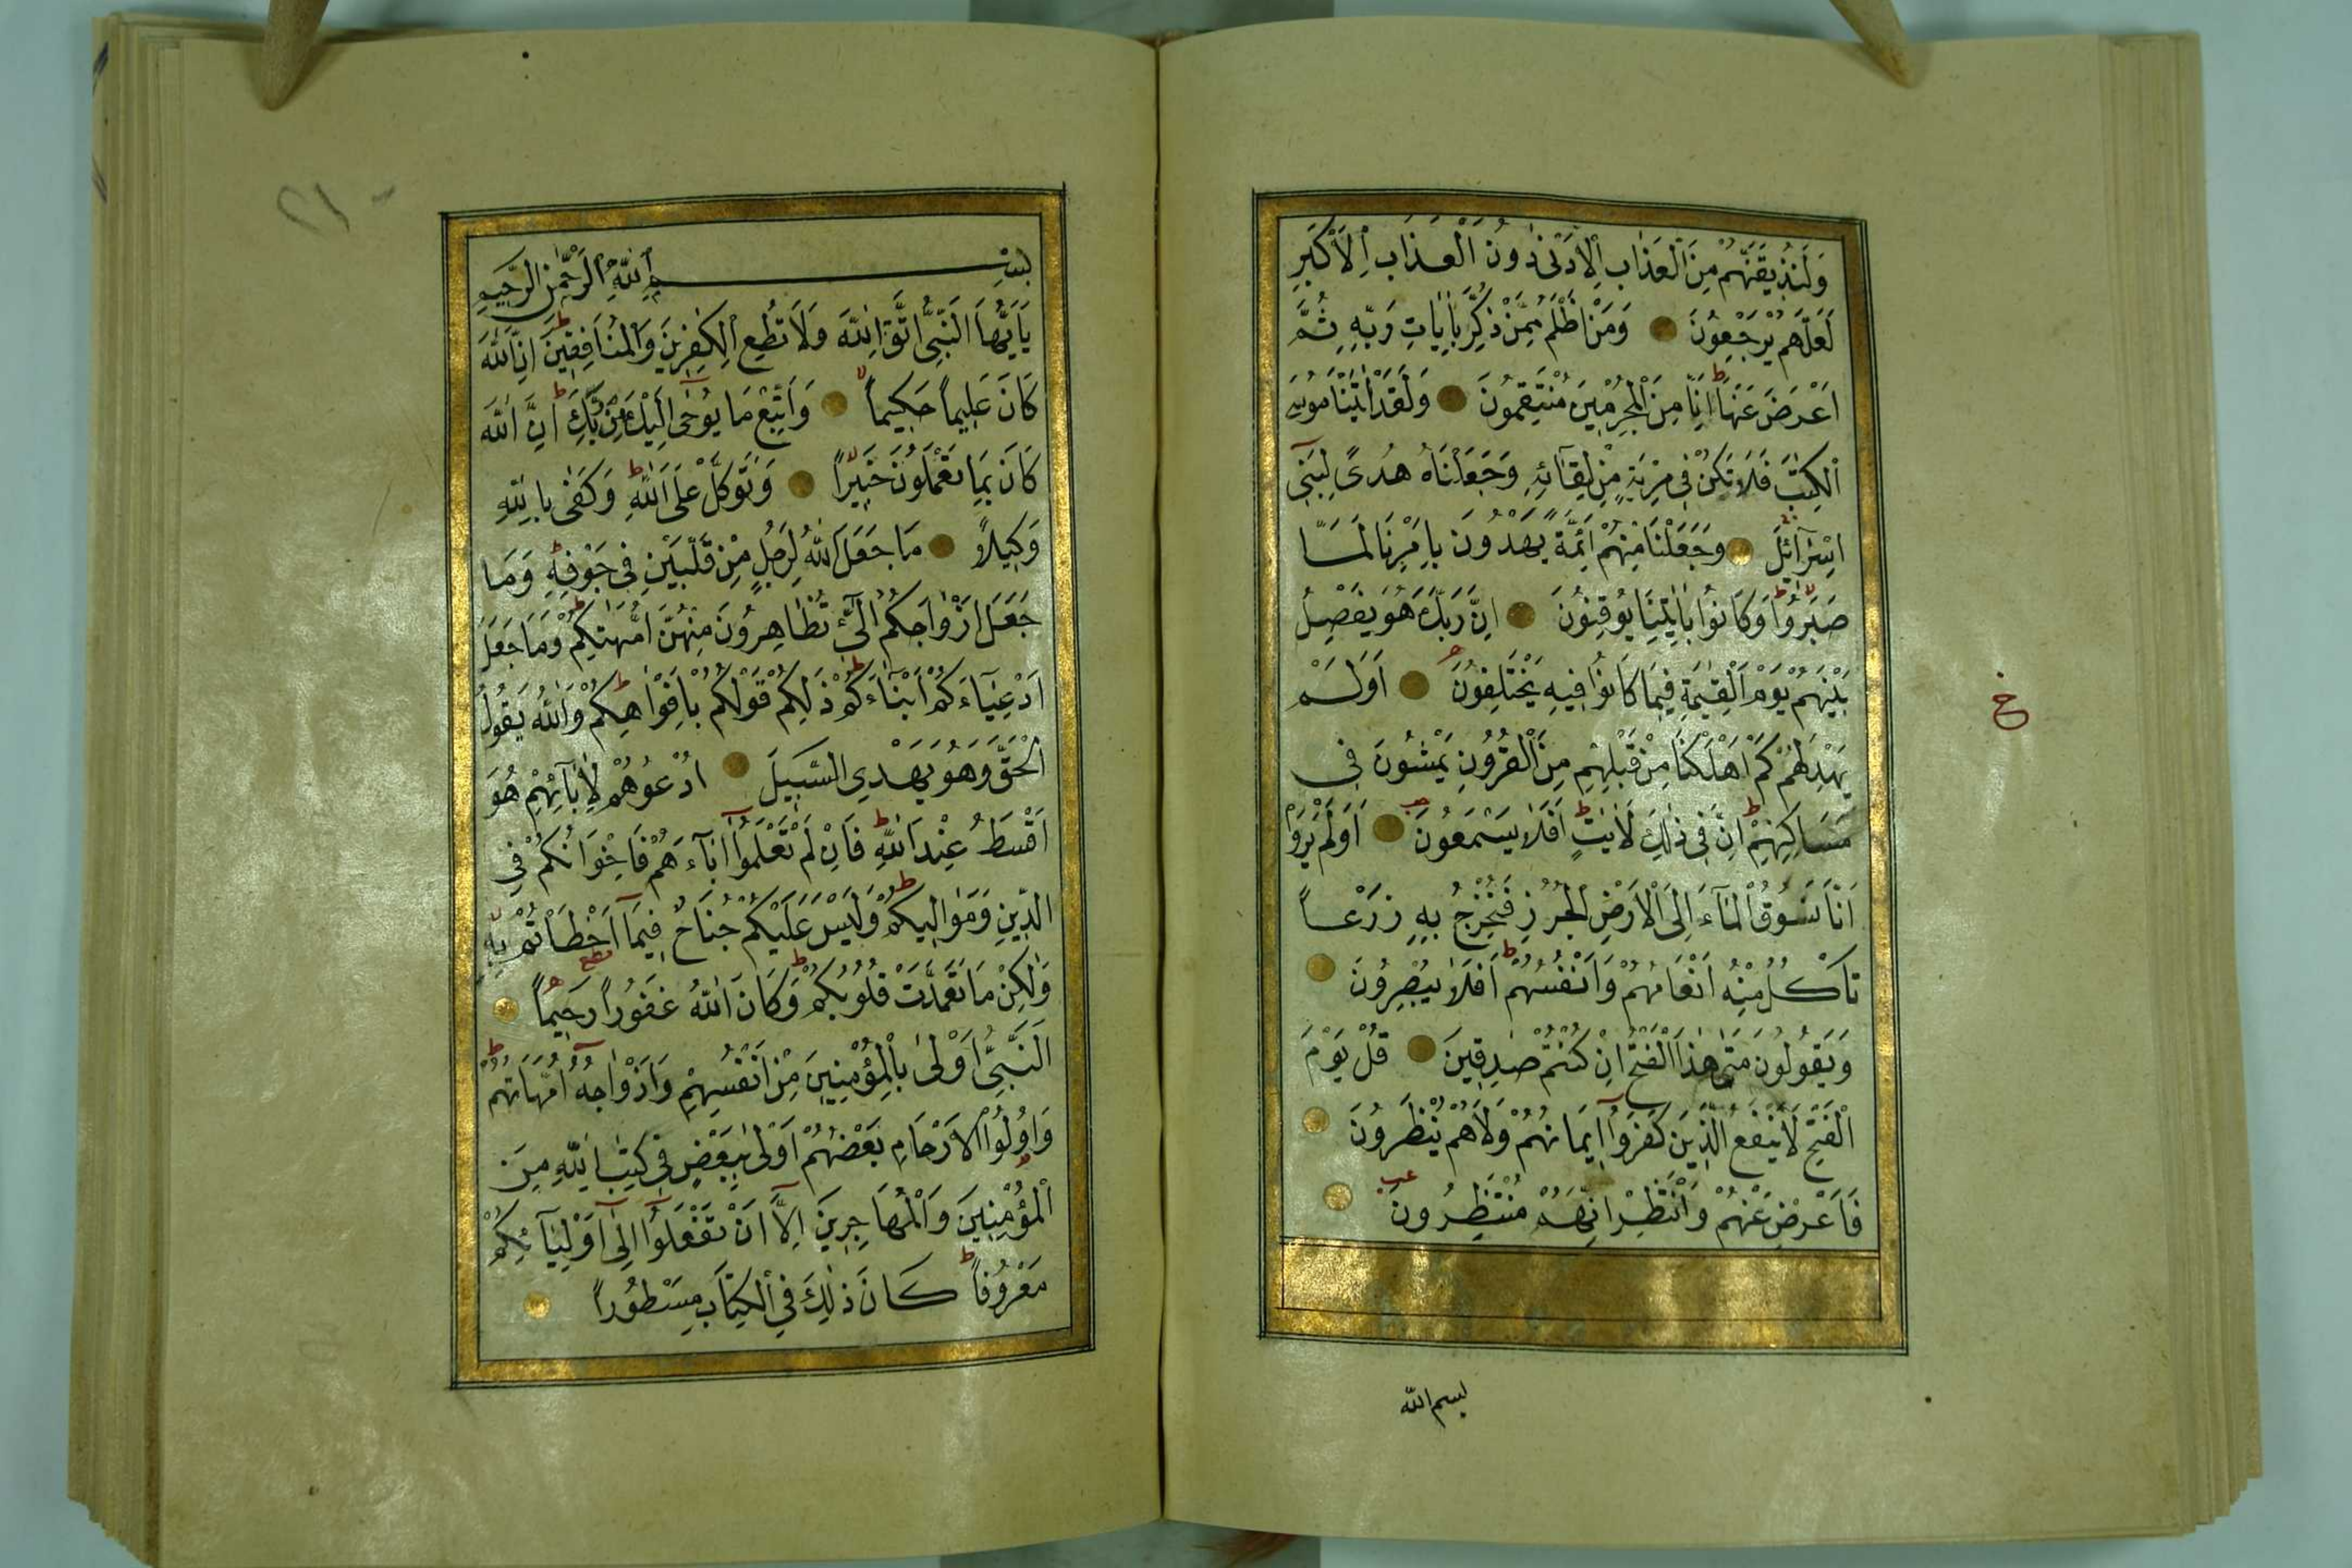 وَلَنُذِيقَنَّهُمْ مِنَ الْعَذَابِ الْاَدْنٰى دُونَ الْعَذَابِ الْاَكْبَرِ
لَعَلَّهُمْ يَرْجِعُونَ وَمَنْ اَظْلَمُ مِمَّنْ ذُكِّرَ بِاٰيَاتِ رَبِّهِ ثُمَّ
اَعْرَضَ عَنْهَا اِنَّا مِنَ الْمُجْرِمِينَ مُنْتَقِمُونَ وَلَقَدْ اٰتَيْنَا مُوسَى
الْكِتٰبَ فَلَا تَكُنْ فِي مِرْيَةٍ مِنْ لِقَآئِهِ وَجَعَلْنَاهُ هُدًى لِبَنِٓي
اِسْرَآئِلَ وَجَعَلْنَا مِنْهُمْ اَئِمَّةً يَهْدُونَ بِاَمْرِنَا لَمَّا
صَبَرُوا وَكَانُوا بِاٰيٰتِنَا يُوقِنُونَ اِنَّ رَبَّكَ هُوَ يَفْصِلُ
بَيْنَهُمْ يَوْمَ الْقِيٰمَةِ فِيمَا كَانُوا فِيهِ يَخْتَلِفُونَ اَوَلَمْ
يَهْدِ لَهُمْ كَمْ اَهْلَكْنَا مِنْ قَبْلِهِمْ مِنَ الْقُرُونِ يَمْشُونَ فِي
مَسَاكِنِهِمْ اِنَّ فِي ذٰلِكَ لَاٰيٰتٍ اَفَلَا يَسْمَعُونَ اَوَلَمْ يَرَوْا
اَنَّا نَسُوقُ الْمَآءَ اِلَى الْاَرْضِ الْجُرُزِ فَنُخْرِجُ بِهِ زَرْعًا
تَاْكُلُ مِنْهُ اَنْعَامُهُمْ وَاَنْفُسُهُمْ اَفَلَا يُبْصِرُونَ
وَيَقُولُونَ مَتٰى هٰذَا الْفَتْحُ اِنْ كُنْتُمْ صٰدِقِينَ قُلْ يَوْمَ
الْفَتْحِ لَا يَنْفَعُ الَّذِينَ كَفَرُٓوا اِيمَانُهُمْ وَلَا هُمْ يُنْظَرُونَ
فَاَعْرِضْ عَنْهُمْ وَانْتَظِرْ اِنَّهُمْ مُنْتَظِرُونَ
بسم الله
خ
بِسْمِ اللّٰهِ الرَّحْمٰنِ الرَّحِيمِ
يَآاَيُّهَا النَّبِيُّ اتَّقِ اللّٰهَ وَلَا تُطِعِ الْكٰفِرِينَ وَالْمُنَافِقِينَ اِنَّ اللّٰهَ
كَانَ عَلِيمًا حَكِيمًا وَاتَّبِعْ مَا يُوحٰٓى اِلَيْكَ مِنْ رَبِّكَ اِنَّ اللّٰهَ
كَانَ بِمَا تَعْمَلُونَ خَبِيرًا وَتَوَكَّلْ عَلَى اللّٰهِ وَكَفٰى بِاللّٰهِ
وَكِيلًا مَا جَعَلَ اللّٰهُ لِرَجُلٍ مِنْ قَلْبَيْنِ فِي جَوْفِهِ وَمَا
جَعَلَ اَزْوَاجَكُمُ الّٰٓئِ تُظَاهِرُونَ مِنْهُنَّ اُمَّهٰتِكُمْ وَمَا جَعَلَ
اَدْعِيَآءَكُمْ اَبْنَآءَكُمْ ذٰلِكُمْ قَوْلُكُمْ بِاَفْوَاهِكُمْ وَاللّٰهُ يَقُولُ
الْحَقَّ وَهُوَ يَهْدِي السَّبِيلَ اُدْعُوهُمْ لِاٰبَآئِهِمْ هُوَ
اَقْسَطُ عِنْدَ اللّٰهِ فَاِنْ لَمْ تَعْلَمُٓوا اٰبَآءَهُمْ فَاِخْوَانُكُمْ فِي
الدِّينِ وَمَوَالِيكُمْ وَلَيْسَ عَلَيْكُمْ جُنَاحٌ فِيمَٓا اَخْطَاْتُمْ بِهِ
وَلٰكِنْ مَا تَعَمَّدَتْ قُلُوبُكُمْ وَكَانَ اللّٰهُ غَفُورًا رَحِيمًا
اَلنَّبِيُّ اَوْلٰى بِالْمُؤْمِنِينَ مِنْ اَنْفُسِهِمْ وَاَزْوَاجُهُ اُمَّهَاتُهُمْ
وَاُولُوا الْاَرْحَامِ بَعْضُهُمْ اَوْلٰى بِبَعْضٍ فِي كِتٰبِ اللّٰهِ مِنَ
الْمُؤْمِنِينَ وَالْمُهَاجِرِينَ اِلَّٓا اَنْ تَفْعَلُٓوا اِلٰٓى اَوْلِيَآئِكُمْ
مَعْرُوفًا كَانَ ذٰلِكَ فِي الْكِتَابِ مَسْطُورًا